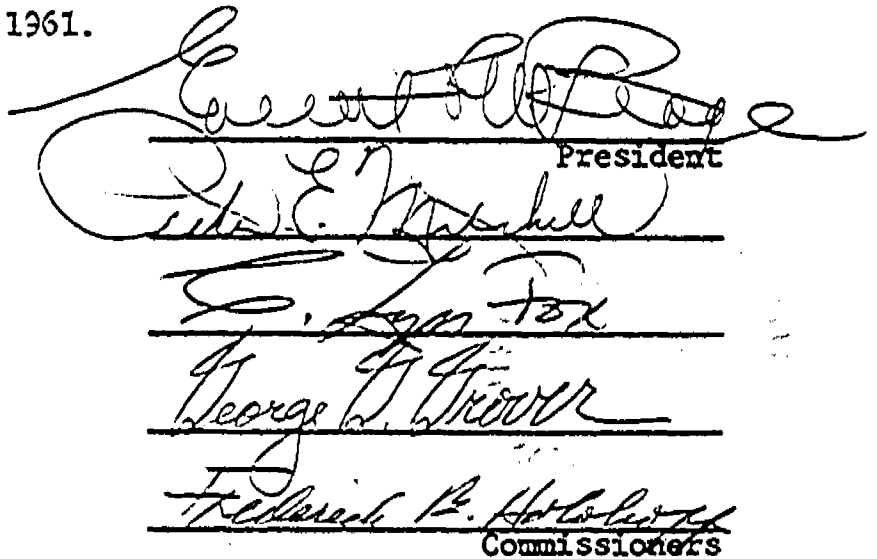 1961.
Everett C. McKeage
President
Peter E. Mitchell
C. Lyn Fox
George G. Grover
Frederick B. Holoboff
Commissioners